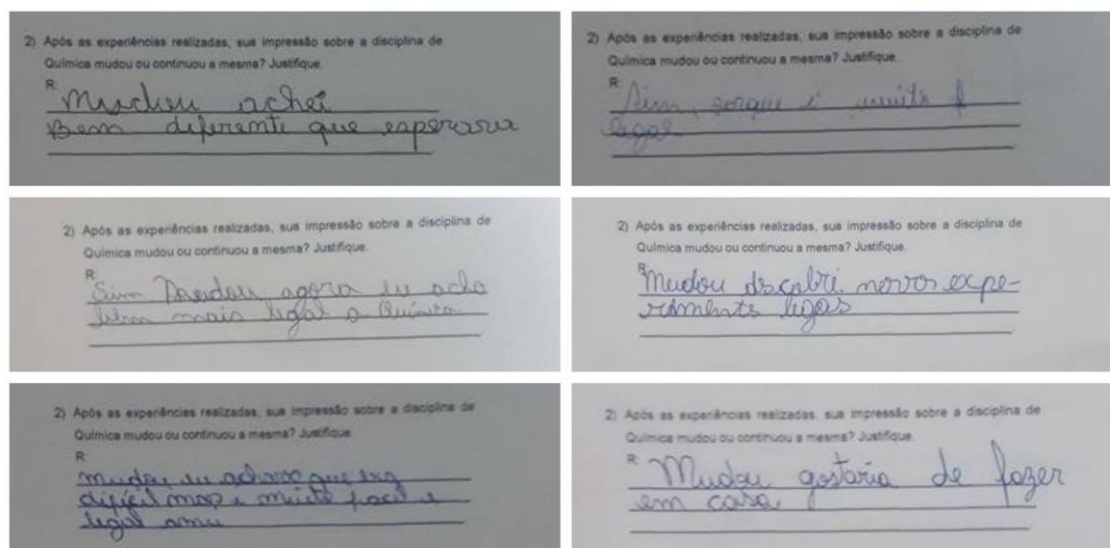 2) Após as experiências realizadas, sua impressão sobre a disciplina de
Química mudou ou continuou a mesma? Justifique.
R:
Mudou achei
Bem diferente que esperava
2) Após as experiências realizadas, sua impressão sobre a disciplina de
Química mudou ou continuou a mesma? Justifique.
R:
Sim, porque é muito
legal
2) Após as experiências realizadas, sua impressão sobre a disciplina de
Química mudou ou continuou a mesma? Justifique.
R:
Sim mudou agora eu acho
bem mais legal a Química
2) Após as experiências realizadas, sua impressão sobre a disciplina de
Química mudou ou continuou a mesma? Justifique.
R:
Mudou descobri novos expe-
rimentos legas
2) Após as experiências realizadas, sua impressão sobre a disciplina de
Química mudou ou continuou a mesma? Justifique.
R:
mudou eu achava que era
difícil mas e muito facil e
legal amei
2) Após as experiências realizadas, sua impressão sobre a disciplina de
Química mudou ou continuou a mesma? Justifique.
R:
Mudou gostaria de fazer
em casa